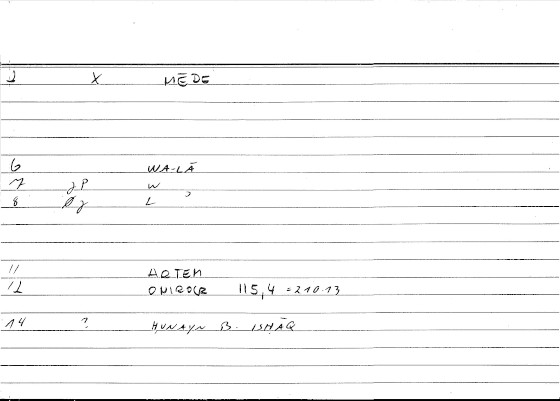 2 X MĒDE
6 WA-LĀ
7 W
8 L
11
12 ONIROCR 115,4 = 210.13
14 ? ḤUNAYN B. ISḤĀQ